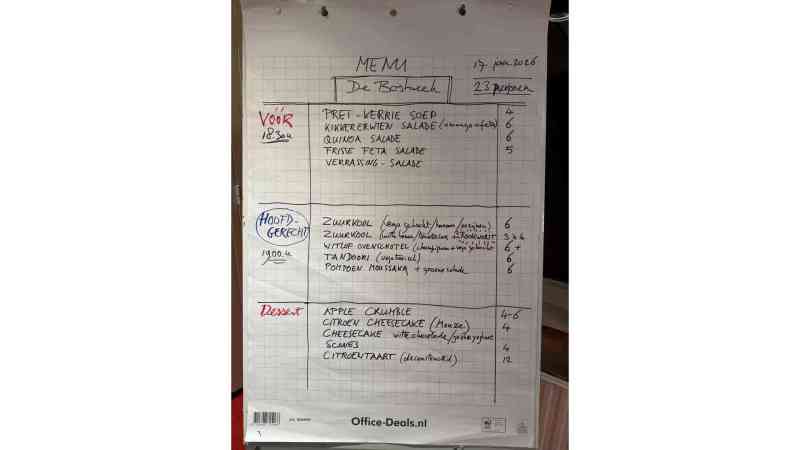 MENU
17 jan 2026
De Boshoek
23 personen
VÓÓR
18.30u
PREI-KERRIE SOEP 4
KIKKERERWTEN SALADE ( 6
QUINOA SALADE 6
FRISSE FETA SALADE 5
VERRASSING-SALADE
HOOFD-
GERECHT
19.00u
ZUURKOOL (vega gehackt/ 6
ZUURKOOL ( ROOKWORST 3 à 4
WITLOF OVENSCHOTEL (champignon + vega gehackt) 6+
TANDOORI (vegetarisch) 6
POMPOEN MOUSSAKA + groene salade 6
Dessert
APPLE CRUMBLE 4-6
CITROEN CHEESECAKE (Monze) 4
CHEESECAKE witte chocolade/
SCONES 4
CITROENTAART ( 12
Office-Deals.nl